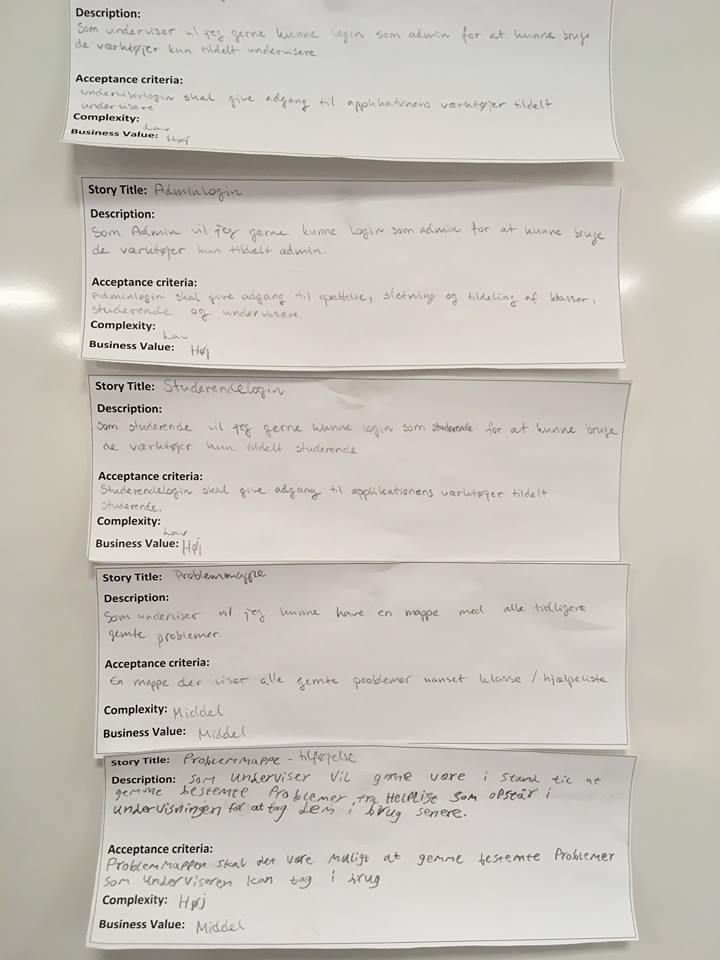 Description:
Som underviser vil jeg gerne kunne login som admin for at kunne bruge
de værktøjer kun tildelt undervisere
Acceptance criteria:
underviserlogin skal give adgang til applikationens værktøjer tildelt
undervisere
Complexity: Lav
Business Value: Høj
Story Title: AdminLogin
Description:
Som Admin vil jeg gerne kunne login som admin for at kunne bruge
de værktøjer kun tildelt admin.
Acceptance criteria:
Adminlogin skal give adgang til oprettelse, sletning og tildeling af klasser,
studerende og undervisere.
Complexity: Lav
Business Value: Høj
Story Title: Studerendelogin
Description:
Som studerende vil jeg gerne kunne login som studerende for at kunne bruge
de værktøjer kun tildelt studerende
Acceptance criteria:
Studerendelogin skal give adgang til applikationens værktøjer tildelt
studerende.
Complexity: Lav
Business Value: Høj
Story Title: Problemmappe
Description:
Som underviser vil jeg kunne have en mappe med alle tidligere
gemte problemer.
Acceptance criteria:
En mappe der viser alle gemte problemer uanset klasse / hjælpeliste
Complexity: Middel
Business Value: Middel
Story Title: Problemmappe - tilføjelse
Description: Som Underviser Vil gerne være i stand til at
gemme bestemte Problemer fra Helplist Som opstår i
undervisningen for at tag dem i brug senere.
Acceptance criteria:
Problemmappen skal det være muligt at gemme bestemte Problemer
som underviseren kan tag i brug
Complexity: Høj
Business Value: Middel